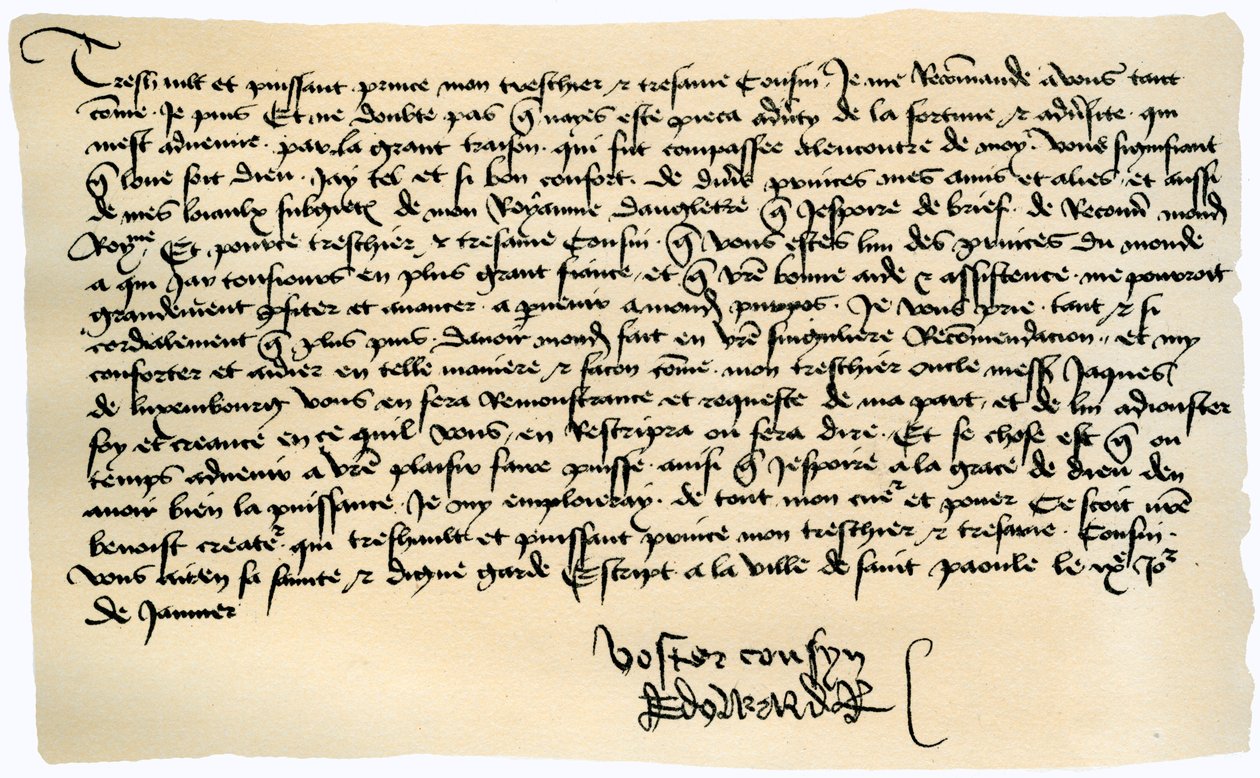 Treshault et puissant prince mon treschier et tresame Cousin Je me Recommande a vous tant
come Je puis Et ne doubte pas q̃ nayes este pieca adv̾ty de la fortune et adv̾site qui
mest advenue par la grant traison qui fut compassee alencontre de moy Vous signifiant
q̃ loue soit dieu Jay tel et si bon confort de div̾s princes mes amis et alies et aussi
de mes loiaulx subgietz de mon Royaume dangletre q̃ Jespoire de brief de Recouv̾ mond
Royme Et pource treschier et tresame Cousin q̃ vous estes lun des princes du monde
a qui Jay tousiours en plus grant fiance et q̃ vr̃e bonne aide et assistence me pouvroit
grandement ꝓfiter et avancer a ꝑvenir a mond propos Je vous prie tant et si
cordialement q̃ plus puis davoir mond fait en vr̃e singuliere Recõmendacion et my
conforter et aidier en telle maniere et facon cõme mon treschier oncle mess Jaques
de luxembourg vous en fera Remonstrance et requeste de ma part et de lui adiouster
foy et creance en ce quil vous en Rescripra ou fera dire Et se chose est q̃ ou
temps advenir a vr̃e plaisir faire puisse ainsi q̃ Jespoire a la grace de dieu den
avoir bien la puissance Je my emploieray de tout mon cuer et pouer Ce scoit nr̃e
benoist creatr qui treshault et puissant prince mon treschier et tresame Cousin
vous ait en sa sainte et digne garde Escript a la ville de saint paoule le ixe Jor
de Janvier
Voster cousyn
Edward R